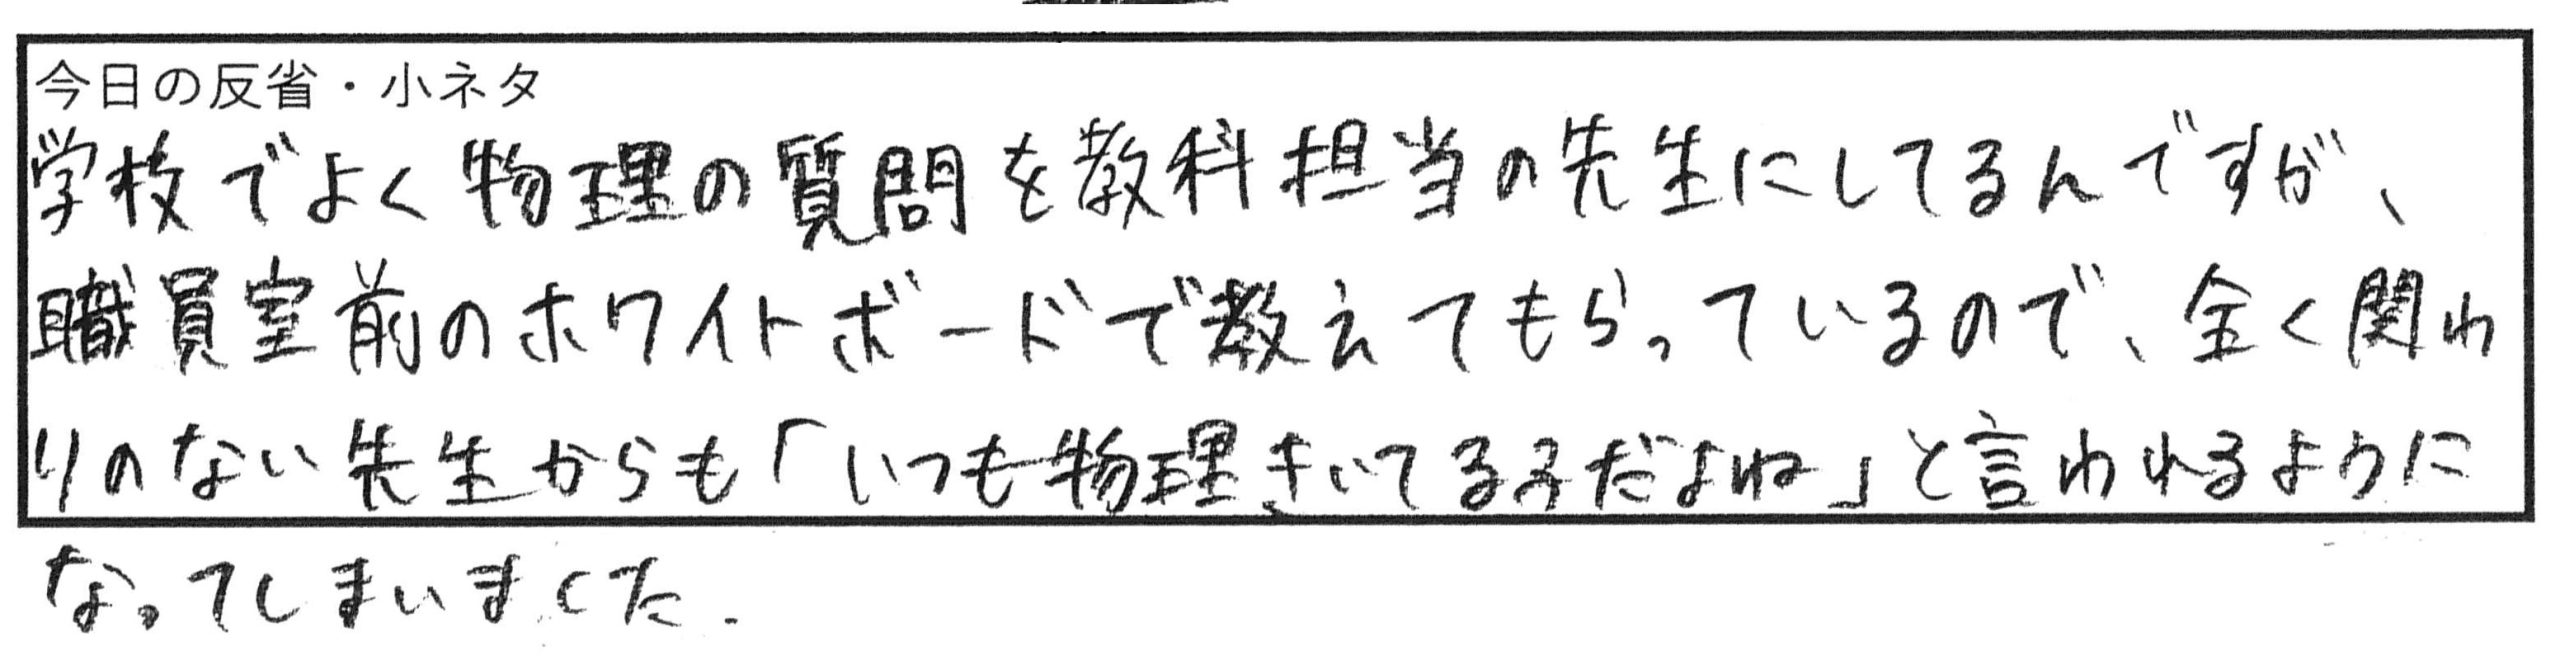 今日の反省・小ネタ
学校でよく物理の質問を教科担当の先生にしてるんですが、
職員室前のホワイトボードで教えてもらっているので、全く関わ
りのない先生からも「いつも物理きいてる子だよね」と言われるように
なってしまいました.